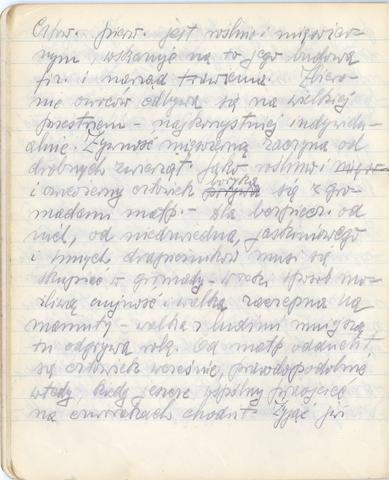 Człow. pierw. jest roślino i mięsożer-
nym, wskazuje na to jego budowa
fiz. i narząd trawienia. Zbiera-
nie owoców odbywa się na wielkiej
przestrzeni - najkorzystniej indywidu-
alnie. Żywność mięsożerną zaczyna od
drobnych zwierząt. Jako roślino i
i owocożerny człowiek boryka się z gro-
madami małp. - dla bezpiecz. od
nich, od niedźwiedzia jaskiniowego
i innych drapieżników musi się
skupiać w gromady - w ten sposób mo-
żliwą czujność i walka zaczepna na
mamuty - walka z ludźmi mniejszą
tu odgrywa rolę. Od małp oddzielił
się człowiek wcześnie, prawdopodobnie
wtedy, kiedy jeszcze wspólny przodek
na czworakach chodził. Żyjąc już